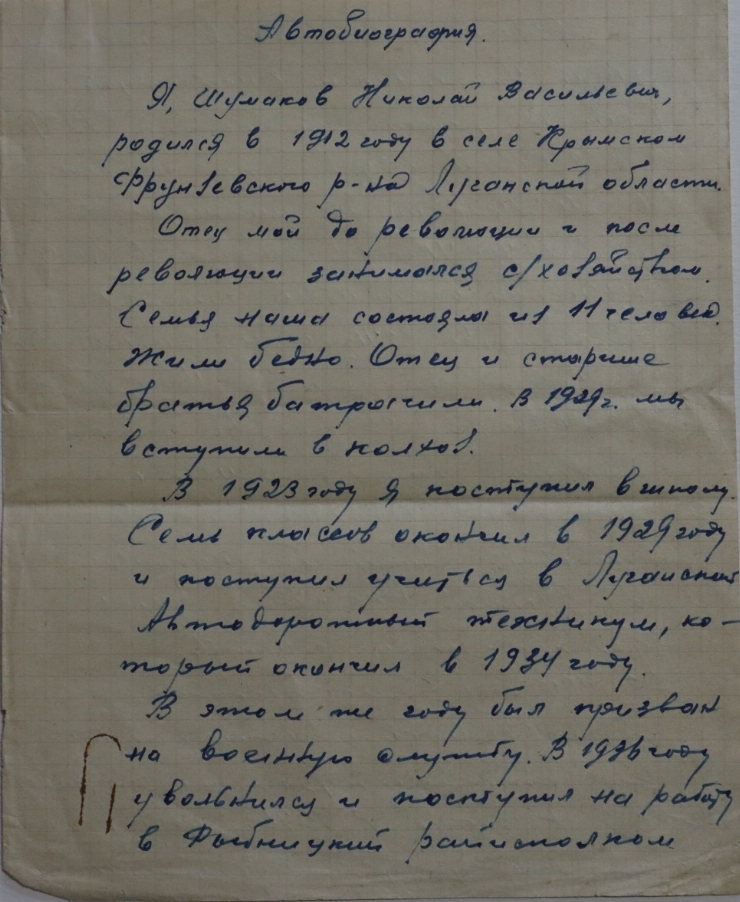 Автобиография.
Я, Шумаков Николай Васильевич,
родился в 1912 году в селе Крымском
Фрунзевского р-на Луганской области.
Отец мой до революции и после
революции занимался с/хозяйством.
Семья наша состояла из 11 человек.
Жили бедно. Отец и старшие
братья батрачили. В 1929 г. мы
вступили в колхоз.
В 1923 году я поступил в школу.
Семь классов окончил в 1929 году
и поступил учиться в Луганский
Автодорожный техникум, ко-
торый окончил в 1934 году.
В этом же году был призван
на военную службу. В 1936 году
уволнился и поступил на работу
в Рыбницкий райисполком